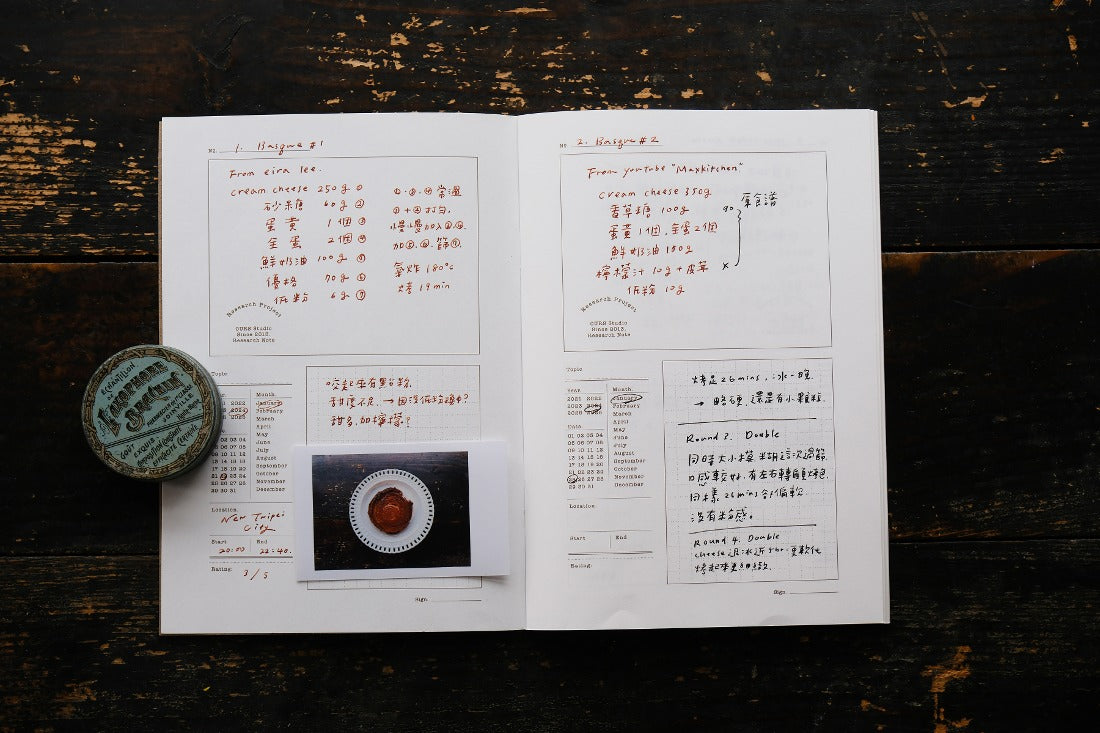 No. 1. Basque #1
From eira lee.
cream cheese 250g ①
砂糖 60g ②
蛋黃 1個 ③
全蛋 2個 ④
鮮奶油 100g ⑤
優格 70g ⑥
低粉 6g ⑦
常溫
①+②打勻,
慢慢加入
氣炸 180°c
烤 19 min
Research Project
OURS Studio
Since 2012.
Research Note
Topic
Year
Month
2021 2022
January
February
March
April
May
June
July
August
September
October
November
December
01 02 03 04
05 06 07 08
09 10 11 12
13 14 15 16
17 18 19 20
21 22 23 24
25 26 27 28
29 30 31
Location:
New Taipei
City
Start End
20:00 22:40.
Rating:
3/5
吃起來有點粉
甜度不足, → 因沒
甜多, 加檸檬?
Sign.
SCHAFTLON
No 2. Basque #2
From youtube "Maxkitchen"
cream cheese 350g
香草糖 100g
90
原食譜
蛋黃1個, 全蛋2個
鮮奶油 150g
檸檬汁 10g + 皮
x
低粉 10g
Research Project
OURS Studio
Since 2012.
Research Note
Topic
Year
Month
2021 2022
January
February
March
April
May
June
July
August
September
October
November
December
Date
01 02 03 04
05 06 07 08
09 10 11 12
13 14 15 16
17 18 19 20
21 22 23 24
25 26 27 28
29 30 31
Location:
Start End
Rating:
烤足 26 mins, 冰一晚.
→ 略硬, 還是有小顆粒.
Round 2. Double
同時大小模 這次過篩
口感較好, 有左右轉
同樣 26 mins 偏軟
沒有粉感。
Round 4. Double
cheese退冰近5hr. 更軟化
烤起來更細緻.
Sign.